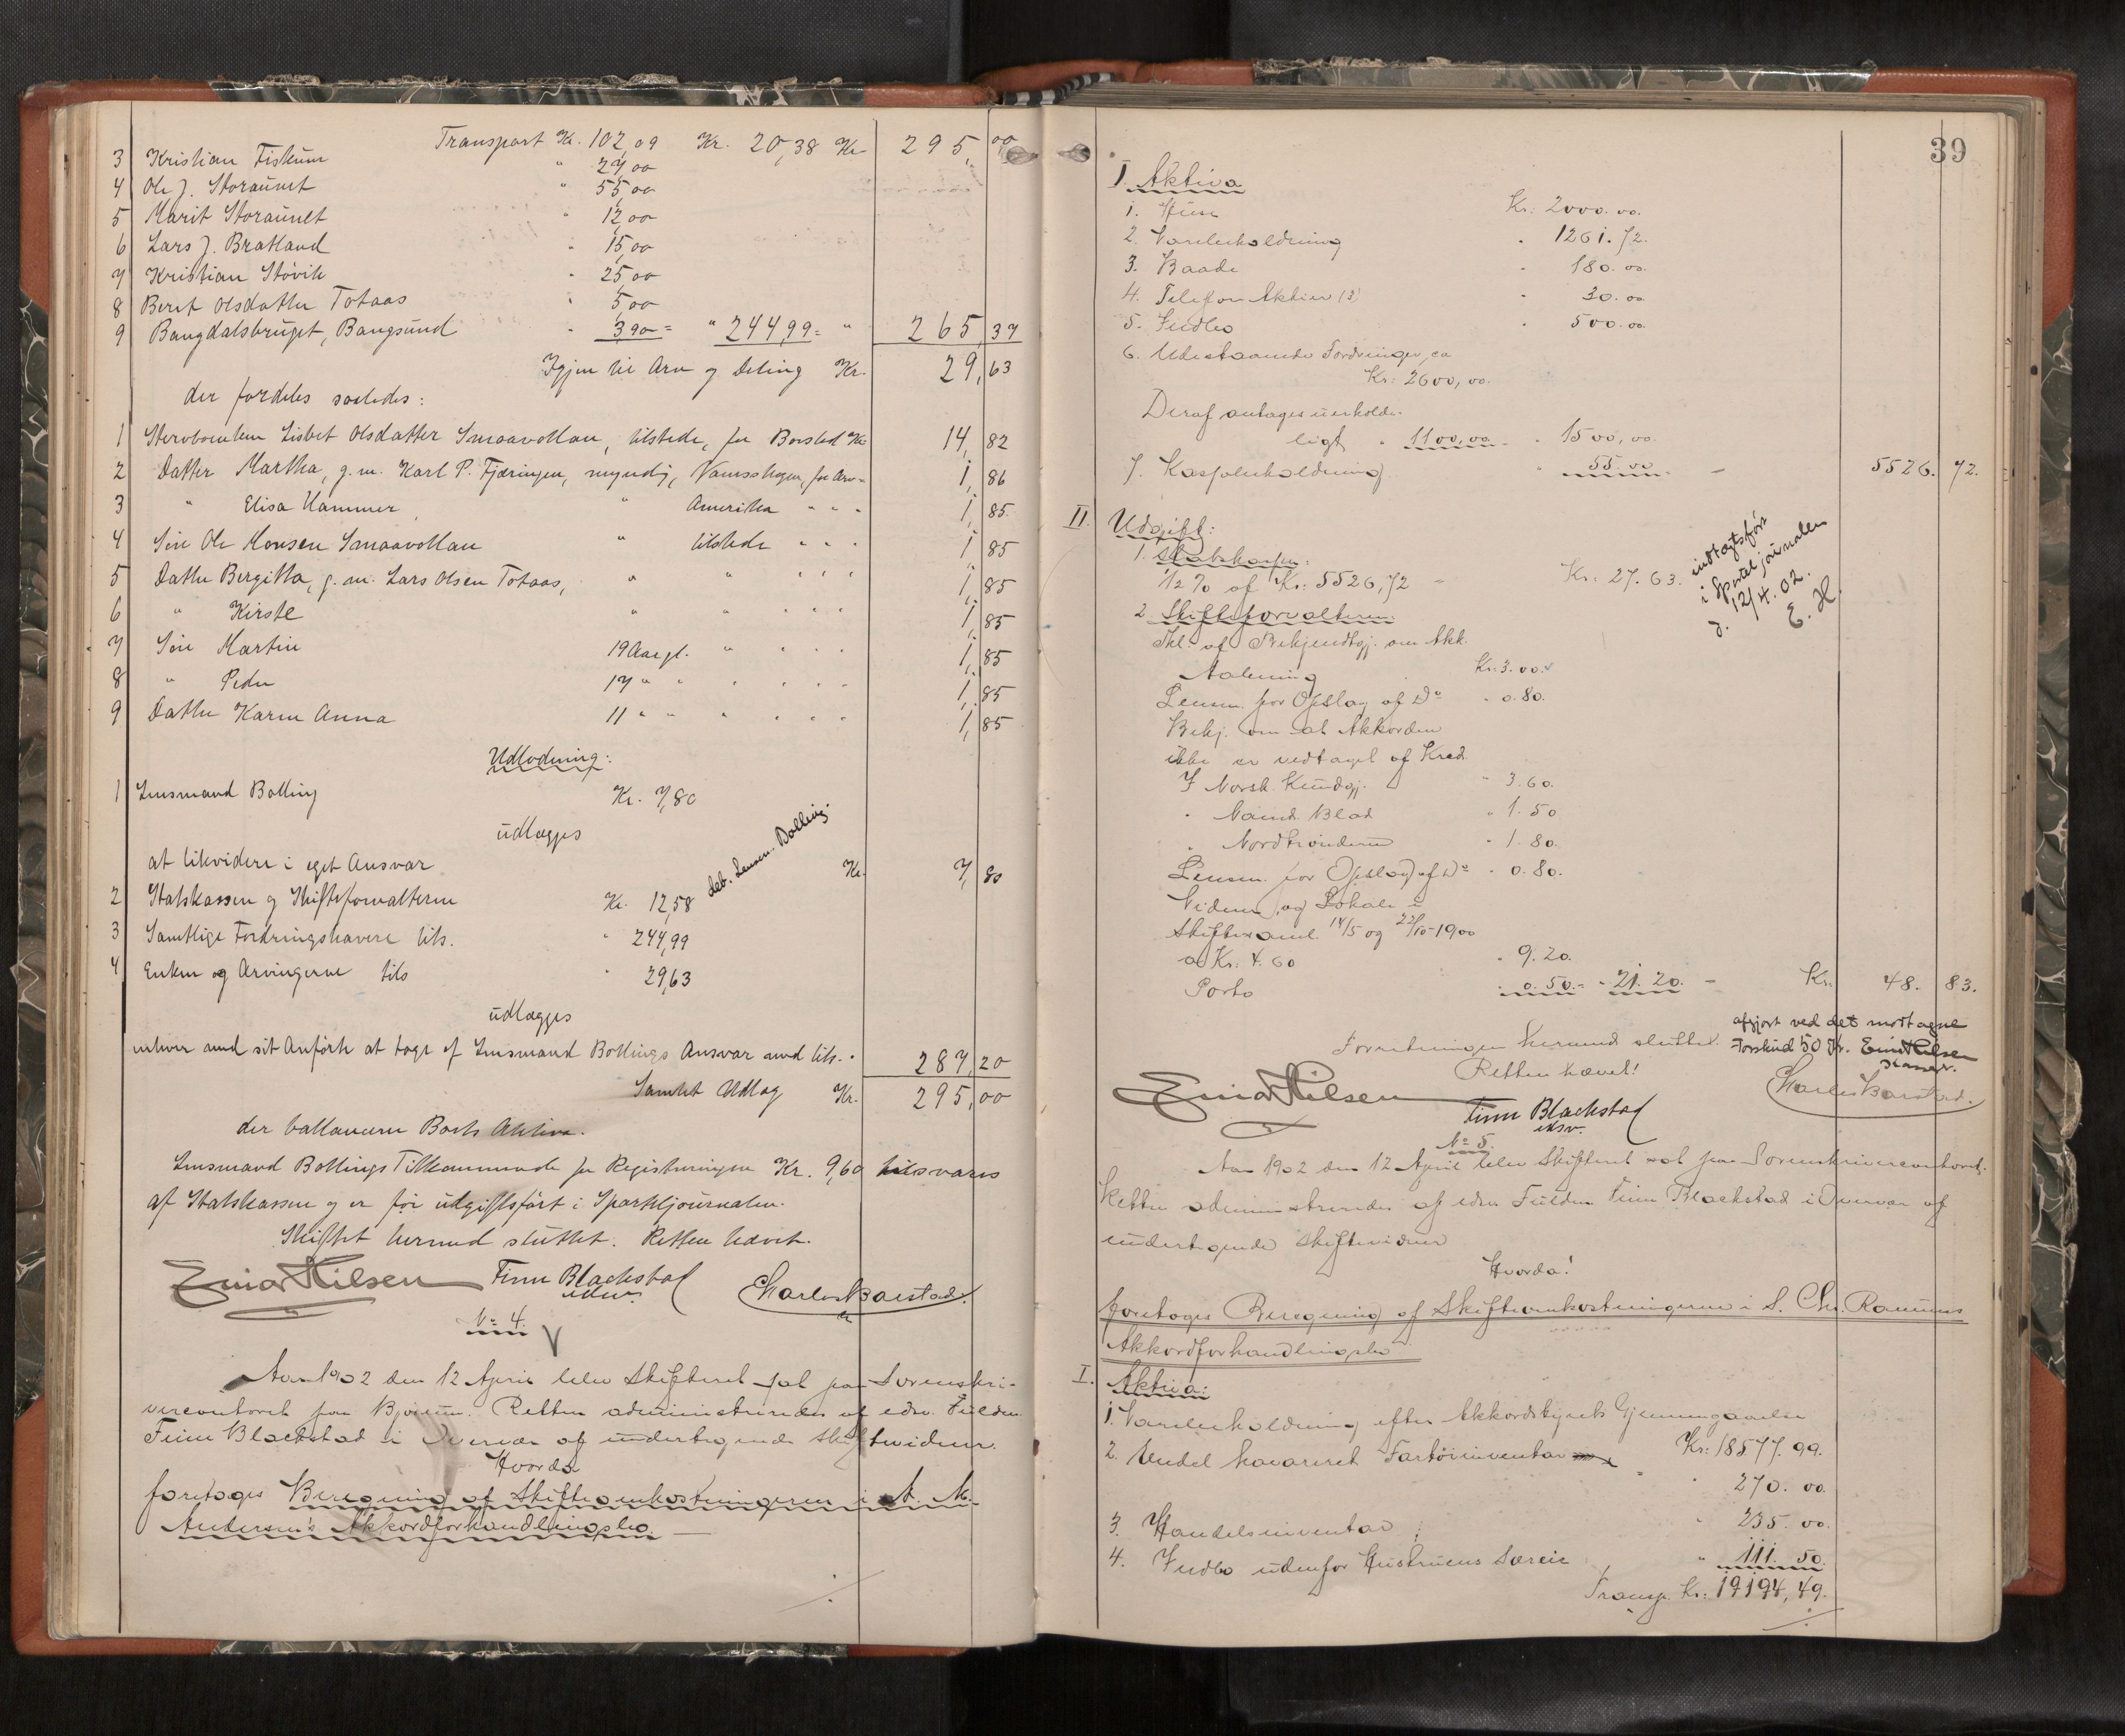 Transport Kr. 102,09 Kr. 20,38 Kr 295,00
3 Kristian Fiskum " 27,00
4 Ole J. Storaunet " 55,00
5 Marit Storaunet " 12,00
6 Lars J. Bratland " 15,00
7 Kristian Støvik " 25,00
8 Berit Olsdatter Totaas " 5,00
9 Bangdalsbruget, Bangsund " 3,90 = " 244,99 = " 265,37
Igjen til Arv og Deling Kr. 29,63
der fordeles saaledes:
1 Stervboenken Lisbet Olsdatter Smaavollan, tilstede, for Boeslod Kr 14,82
2 Datter Martha, g. m. Karl P. Fjæringen, myndig, Vemsskogen, for Arv " 1,86
3 " Elisa Hammer " Amerika " " " 1,85
4 Søn Ole Monsen Smaavollan " tilstede " " " 1,85
5 Datter Bergitta, g. m. Lars Olsen Totaas, " " " " " 1,85
6 " Kirste " " " " " 1,85
7 Søn Martin 19 Aar gl. " " " " 1,85
8 " Peder 17 " " " " " " 1,85
9 Datter Karen Anna 11 " " " " " " 1,85
Udlodning:
1 Lensmand Bolling Kr. 7,80
udlægges
at likvidere i eget Ansvar Kr. 7,80
deb. Lensm. Bolling.
2 Statskassen og Skifteforvalteren Kr. 12,58
3 Samtlige Fordringshavere tils. " 244,99
4 Enken og Arvingerne tils " 29,63
udlægges
enhver med sit Anførte at tage af Lensmand Bollings Ansvar med tils. " 287,20
Samlet Udlæg Kr. 295,00
der ballancerer Boets Aktiva.
Lensmand Bollings Tilkommende for Registreringen Kr. 9,60 tilsvares
af Statskassen og er før udgiftsført i Sporteljournalen.
Skiftet hermed sluttet. Retten hævet.
Einar Hilsen Finn Blackstad Charles Barstad.
edsv.
No 4.
Aar 1902 den 12 April blev Skifteret sat paa Sorenskri-
vercontoret paa Bjørum. Retten administreredes af edsv. Fuldm.
Finn Blackstad i Overvær af undertegnede Skiftevidner.
Hvorda
foretages Beregning af Skifteomkostningerne i A. M.
Andersen's Akkordforhandlingsbo.
39
I. Aktiva
1. Huse Kr: 2000. 00.
2. Varebeholdning " 1261. 72.
3. Baade " 180. 00.
4. Telefon Aktier (3) " 30. 00
5. Indbo " 500. 00.
6. Udestaaende Fordringer, ca
Kr: 2600, 00.
Deraf antages uerholde-
ligt " 1100,00 - " 1500, 00.
7. Kassebeholdning " 55.00. - 5526. 72.
II. Udgift:
1. Statskassen:
1/2 % af Kr: 5526,72 - Kr: 27. 63.
indtægtsført
i Sportel journalen
d. 12/4. 02.
E. H.
2. Skifteforvalteren
Bekjendtgj. om Akk.
Aabning Kr: 3. 00.
Lensm. for Opslag af Do " 0. 80.
Bekj. om at Akkorden
ikke er vedtaget af Kred.
I Norsk. Kundgj. " 3. 60.
" Namd. Blad " 1. 50
" Nordtrønderen " 1. 80.
Lensm. for Opslag af Do " 0. 80.
Vidner og Lokale i
Skiftesaml. 14/5 og 22/10-1900
a Kr. 4. 60 " 9. 20.
Porto " 0. 50. = " 21. 20. - Kr. 48. 83.
afgjort ved det modtagne
Forskud 50 Kr. Einar Hilsen
Forretningen hermed sluttet.
Retten hævet!
Einar Hilsen Finn Blackstad Charles Barstad.
edsv.
No 5.
Aar 1902 den 12 April blev Skifteret sat paa Sorenskrivercontoret.
Retten administreredes af edsv. Fuldm. Finn Blackstad i Overvær af
undertegnede Skiftevidner
Hvorda!
foretages Beregning af Skifteomkostningerne i S. Chr. Ramus
Akkordforhandlingsbo
I. Aktiva:
1. Varebeholdning efter Akkordstyrets Gjennemgaaelse
Kr: 18577. 99.
2. Endel havareret Fartøiinventar " 270. 00.
3. Handelsinventar " 235. 00.
4. Indbo udenfor Hustruens Særeie " 111. 50.
Transp. Kr: 19194,49.